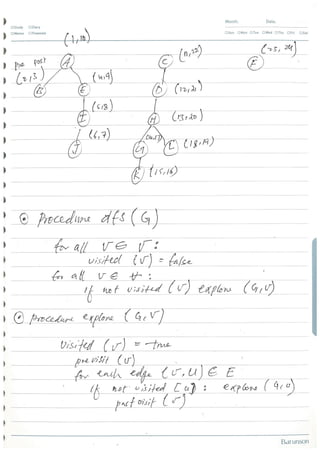 (1,10)
A
pre post
(2,3)
B
E
(4,9)
I
(5,8)
J
(6,7)
C
D
(12,21)
H
(13,20)
G
L
(18,19)
K
(15,16)
F
(23,24)
Procedure dfs (G)
for all v ∈ V:
visited (v) = false
for all v ∈ V:
if not visited (v) explore (G,v)
procedure explore (G,v)
Visited (v) = true
previsit (v)
for each edge (v,u) ∈ E
if not visited [u]: explore (G,u)
postvisit (v)